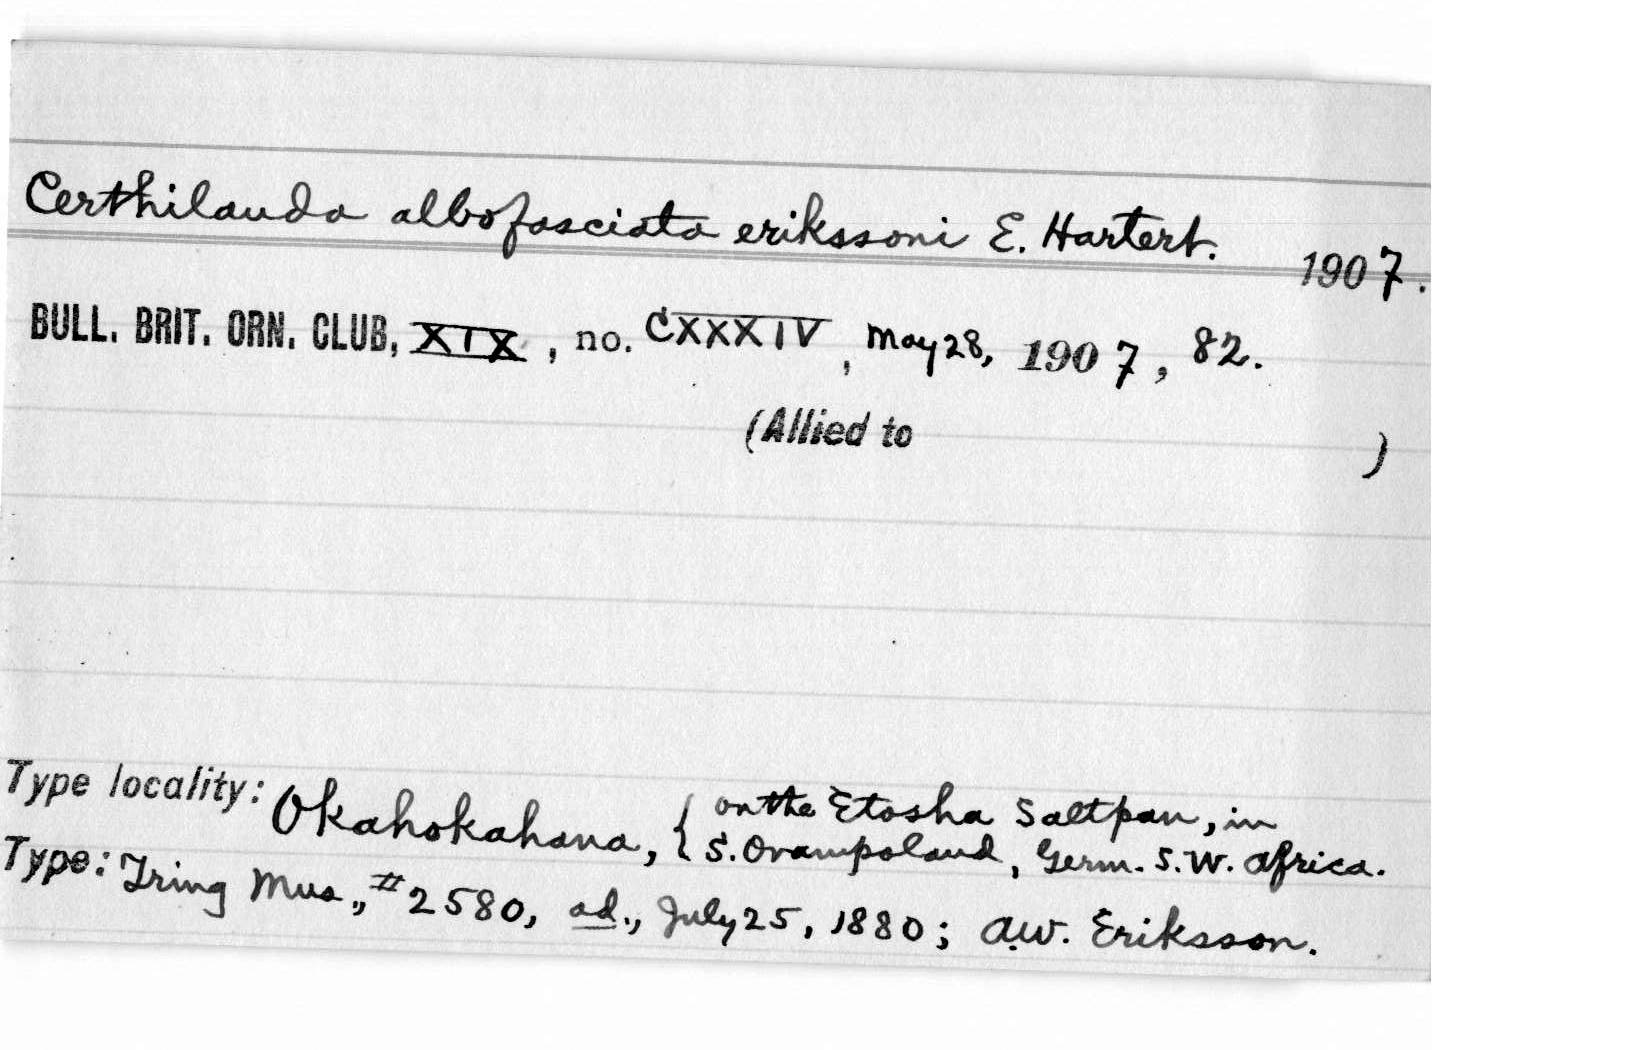 Certhilauda albofasciata erikssoni E. Hartert. 1907.
BULL. BRIT. ORN. CLUB, XIX, no. CXXXIV, May 28, 1907, 82.
(Allied to )
Type locality: Okahokahana, { on the Etosha Saltpan, in
S. Ovampoland, Germ. S.W. Africa.
Type: Tring Mus., #2580, ad., July 25, 1880; A.W. Eriksson.